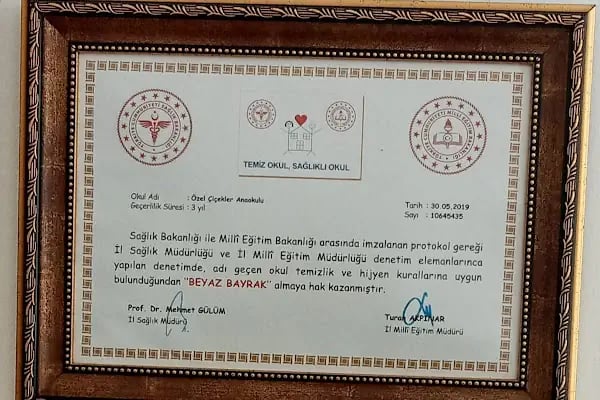 TEMİZ OKUL, SAĞLIKLI OKUL
Okul Adı : Özel Çiçekler Anaokulu
Geçerlilik Süresi : 3 yıl
Tarih : 30.05.2019
Sayı : 10645435
Sağlık Bakanlığı ile Millî Eğitim Bakanlığı arasında imzalanan protokol gereği
İl Sağlık Müdürlüğü ve İl Millî Eğitim Müdürlüğü denetim elemanlarınca
yapılan denetimde, adı geçen okul temizlik ve hijyen kurallarına uygun
bulunduğundan "BEYAZ BAYRAK" almaya hak kazanmıştır.
Prof. Dr. Mehmet GÜLÜM
İl Sağlık Müdürü
Turan AKPINAR
İl Millî Eğitim Müdürü